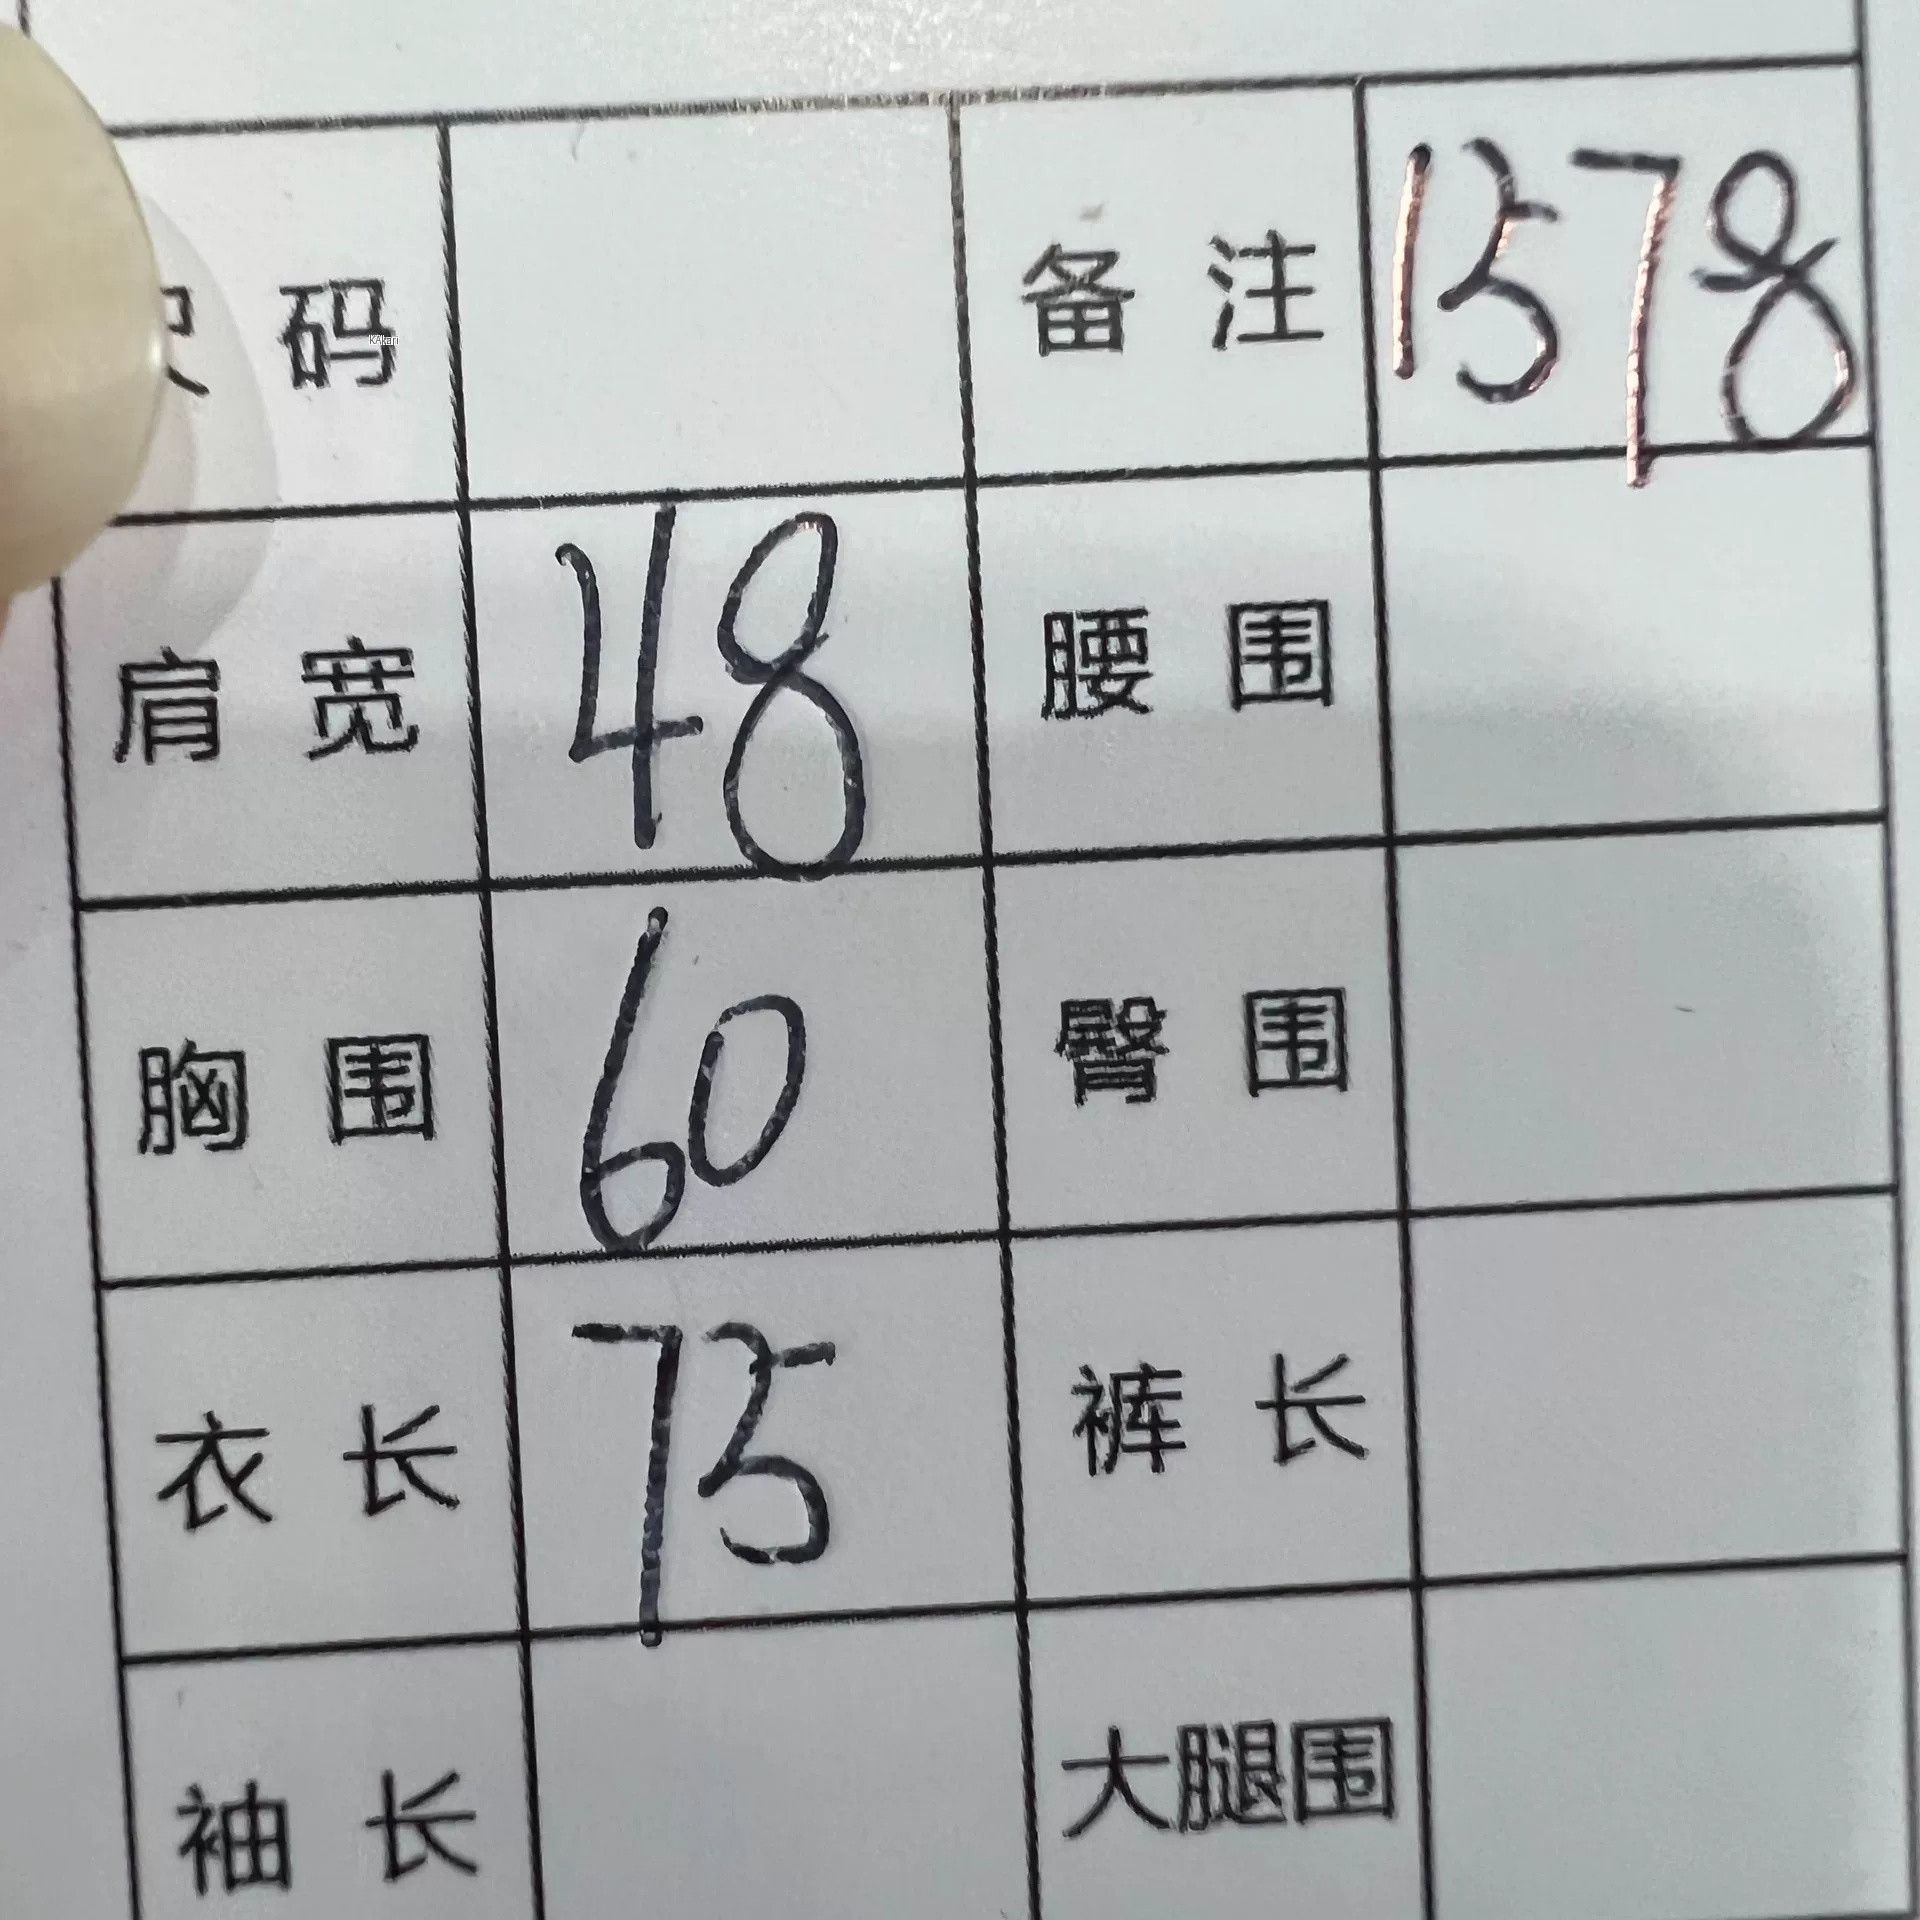 码 备注 1578
肩宽 48 腰围
胸围 60 臀围
衣长 75 裤长
袖长 大腿围